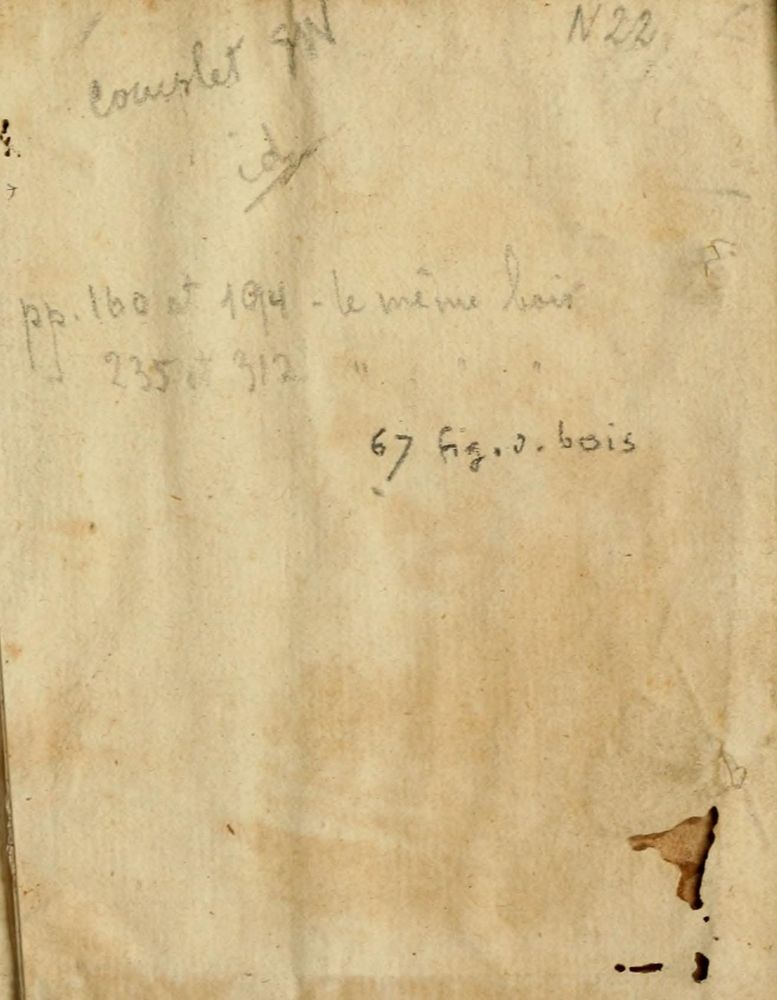 N 22
complet
pp. 160 et 194 - le même bois
" 235 et 312 " " "
67 fig. s. bois